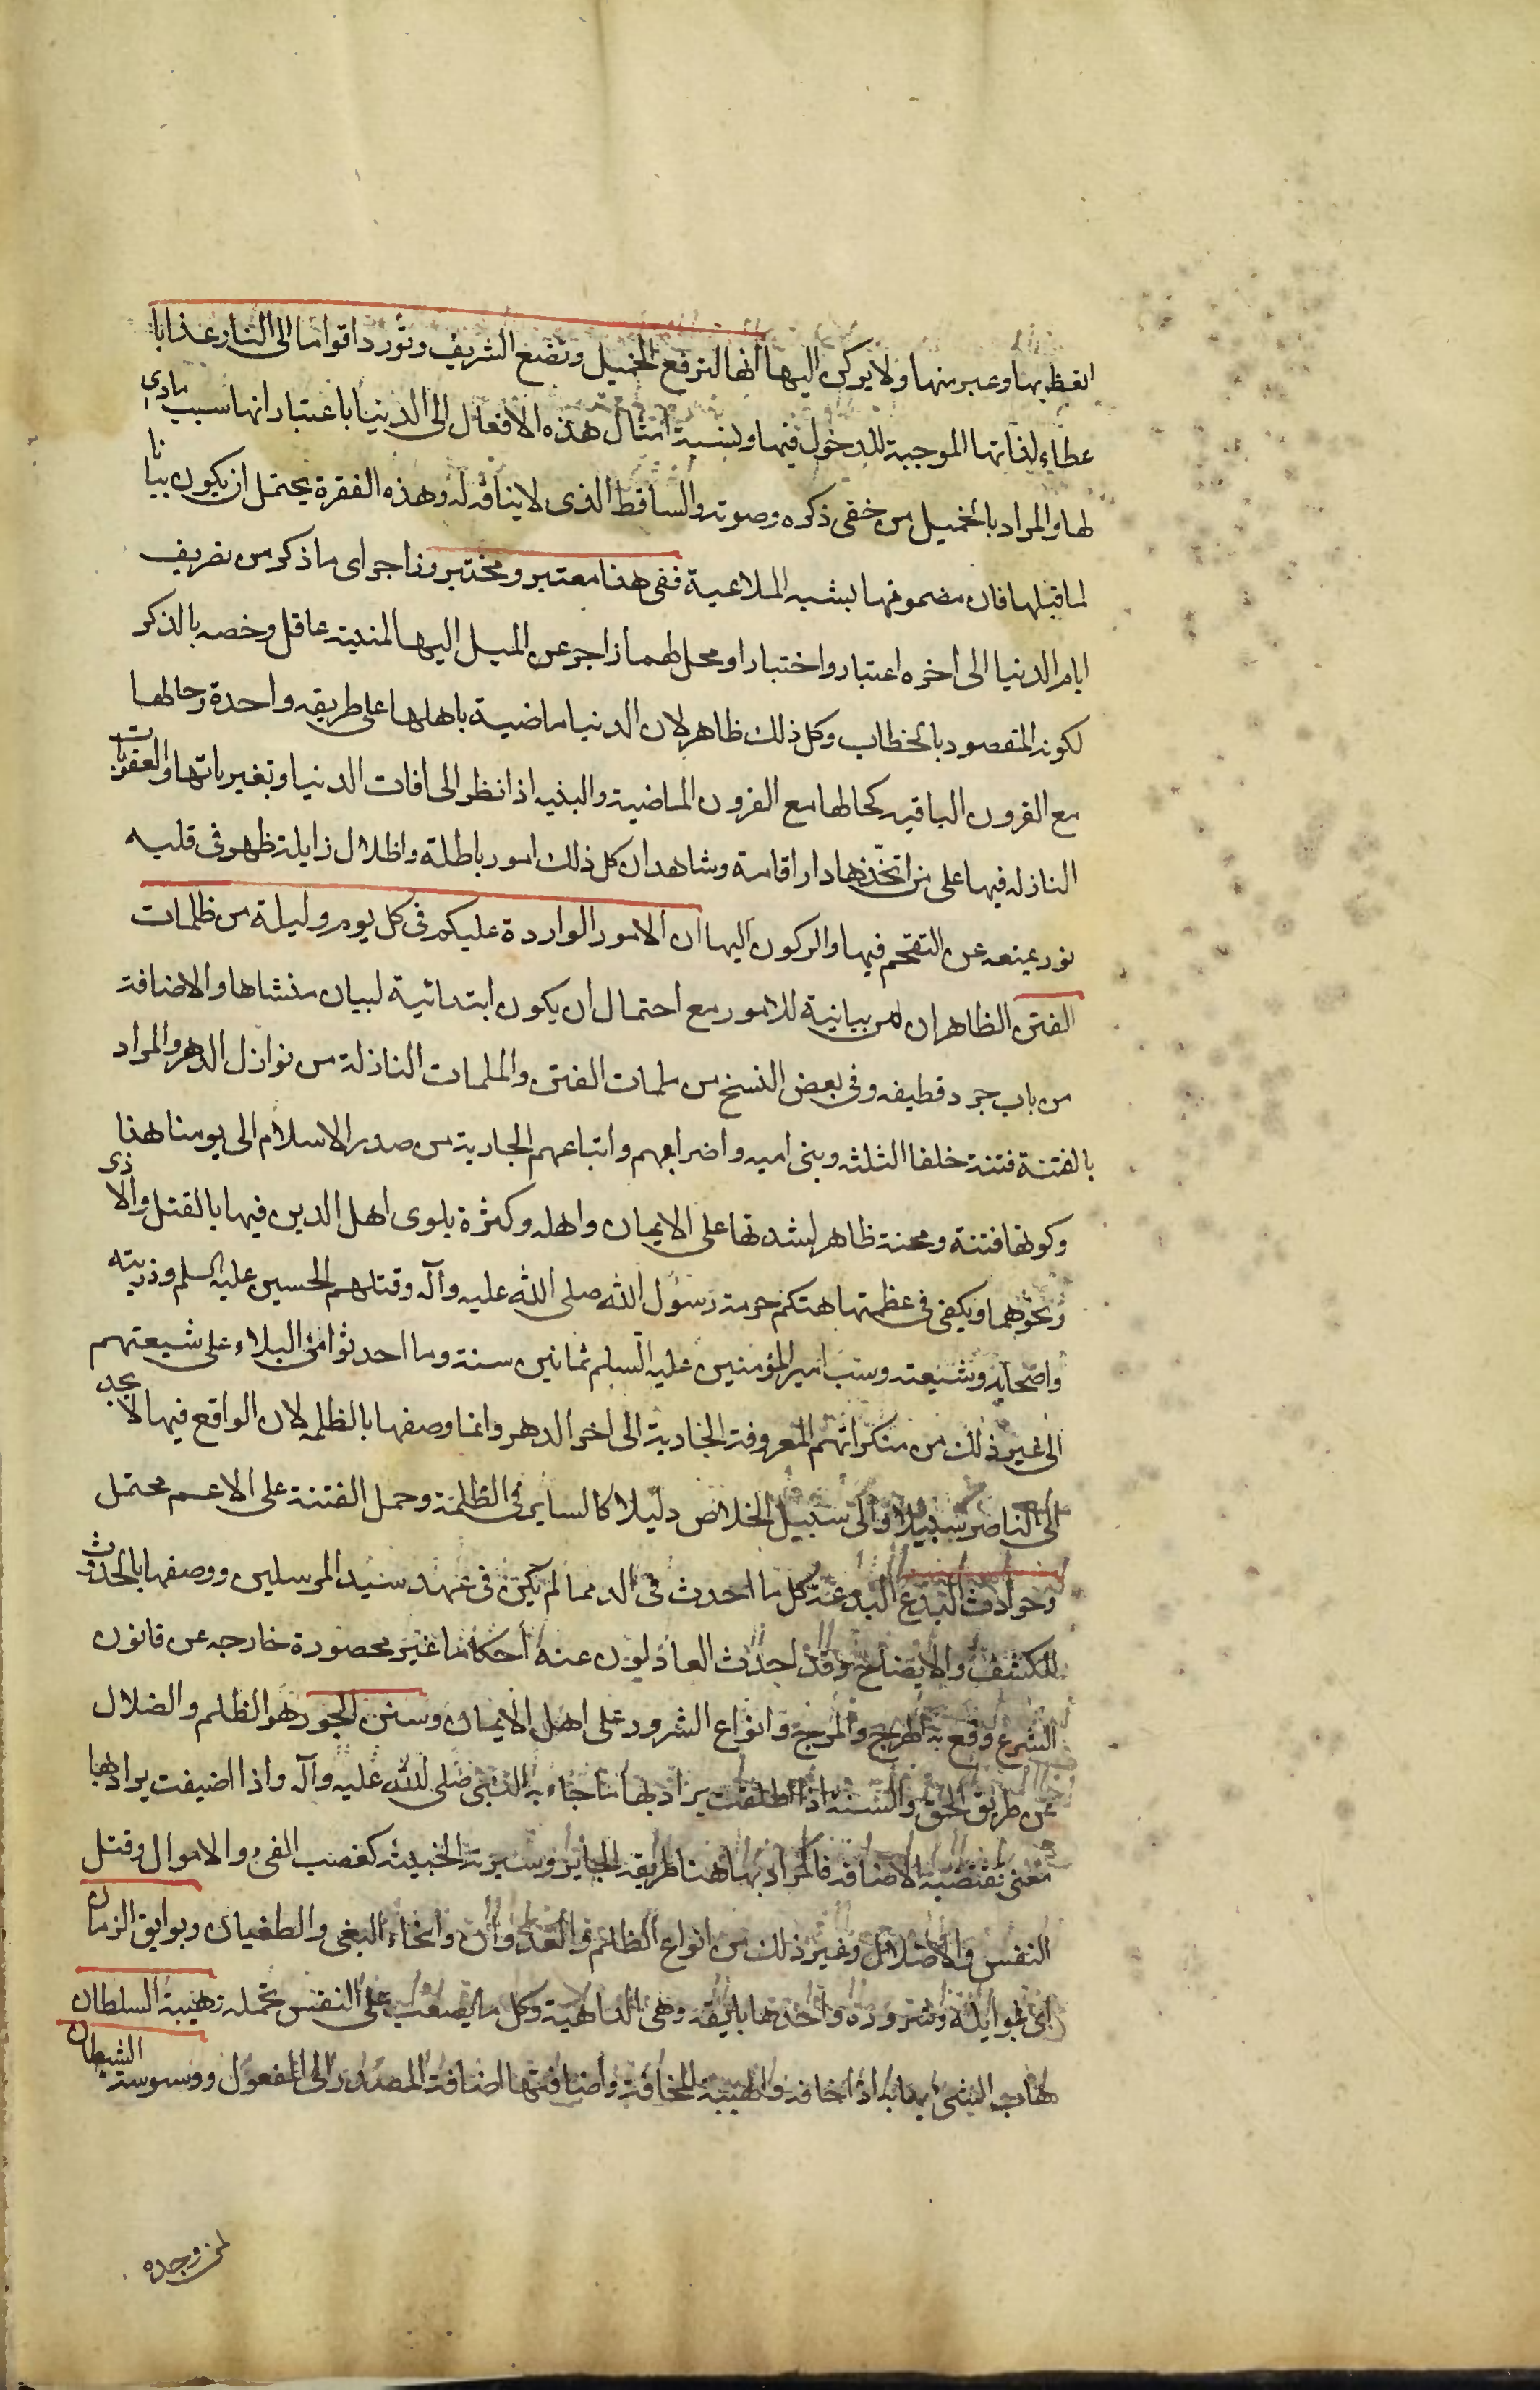 اتعظ بها وعبر منها ولا يركن اليها انها لترفع الخميل وتضع الشريف وتورد اقواما الى النار عذابا
عطاء لذاتها الموجبة للدخول فيها ونسبة امثال هذه الافعال الى الدنيا باعتبار انها سبب مادى
لها والمراد بالخميل من خفى ذكره وصوته والساقط الذى لا نباهة له وهذه الفقرة يحتمل ان يكون بيانا
لما قبلها فان مضمونها يشبه الملاعبة ففى هذا معتبر ومختبر وزاجر اى ما ذكر من تصريف
ايام الدنيا الى اخره اعتبار واختبار او محل لهما زاجر عن الميل اليها لمنتبه عاقل وخصه بالذكر
لكونه المقصود بالخطاب وكل ذلك ظاهر لان الدنيا ماضية باهلها على طريقه واحدة وحالها
مع القرون الباقيه كحالها مع القرون الماضية والبنيه اذا نظر الى افات الدنيا وتغيراتها والعقوبات
النازله فيها على من اتخذها دار اقامة وشاهد ان كل ذلك امور باطلة واظلال زايلة ظهر فى قلبه
نور يمنعه عن التقحم فيها والركون اليها ان الامور الواردة عليكم فى كل يوم وليلة من ظلمات
الفتن الظاهر ان من بيانية للامور مع احتمال ان يكون ابتدائية لبيان منشاها والاضافة
من باب جرد قطيفه وفى بعض النسخ من ملمات الفتن والملمات النازلة من نوازل الدهر والمراد
بالفتنة فتنة خلفا الثلثه وبنى اميه واضرابهم واتباعهم الجارية من صدر الاسلام الى يومنا هذا
وكونها فتنة ومحنة ظاهر لشدتها على الايمان واهله وكثرة بلوى اهل الدين فيها بالقتل والاذى
ونحوهما ويكفى فى عظمتها هتكم حرمة رسول الله صلى الله عليه وآله وقتلهم الحسين عليه السلم وذريته
واصحابه وشيعته وسب امير المؤمنين عليه السلم ثمانين سنة وما احدثوا من البلاء على شيعتهم
الى غير ذلك من منكراتهم المعروفة الجارية الى اخر الدهر وانما وصفها بالظلمه لان الواقع فيها لا يجد
الى الناصر سبيلا والى سبيل الخلاص دليلا كالساير فى الظلمة وحمل الفتنة على الاعم محتمل
وحوادث البدع البدعة كل ما احدث فى الدين مما لم يكن فى عهد سيد المرسلين ووصفها بالحدوث
للكشف والايضاح وقد احدث العادلون عنه احكاما غير محصورة خارجه عن قانون
الشرع وقع به الهرج والمرج وانواع الشرور على اهل الايمان وسنن الجور هو الظلم والضلال
عن طريق الحق والسنه اذا اطلقت يراد بها ما جاء به النبى صلى الله عليه وآله واذا اضيفت يراد بها
معنى تقتضيه الاضافه فالمراد بها هنا طريقه الجاير وسيرته الخبيثه كغصب الفىء والاموال وقتل
النفس والاضلال وغير ذلك من انواع الظلم والعدوان وانحاء البغى والطغيان وبوايق الزمان
اى غوايله وشروره واحدها بايقه وهى الداهية وكل ما يصعب على النفس تحمله وهيبة السلطان
هاب الشىء يهابه اذا خافه والهيبة المخافة واضافتها اضافة المصدر الى المفعول ووسوسة الشيطان